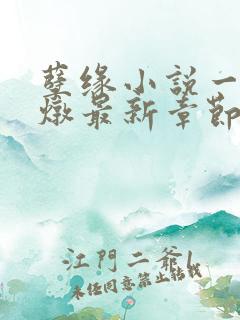 孽缘小说一
燉最新章節
江門二爺l
未任同意禁止转载